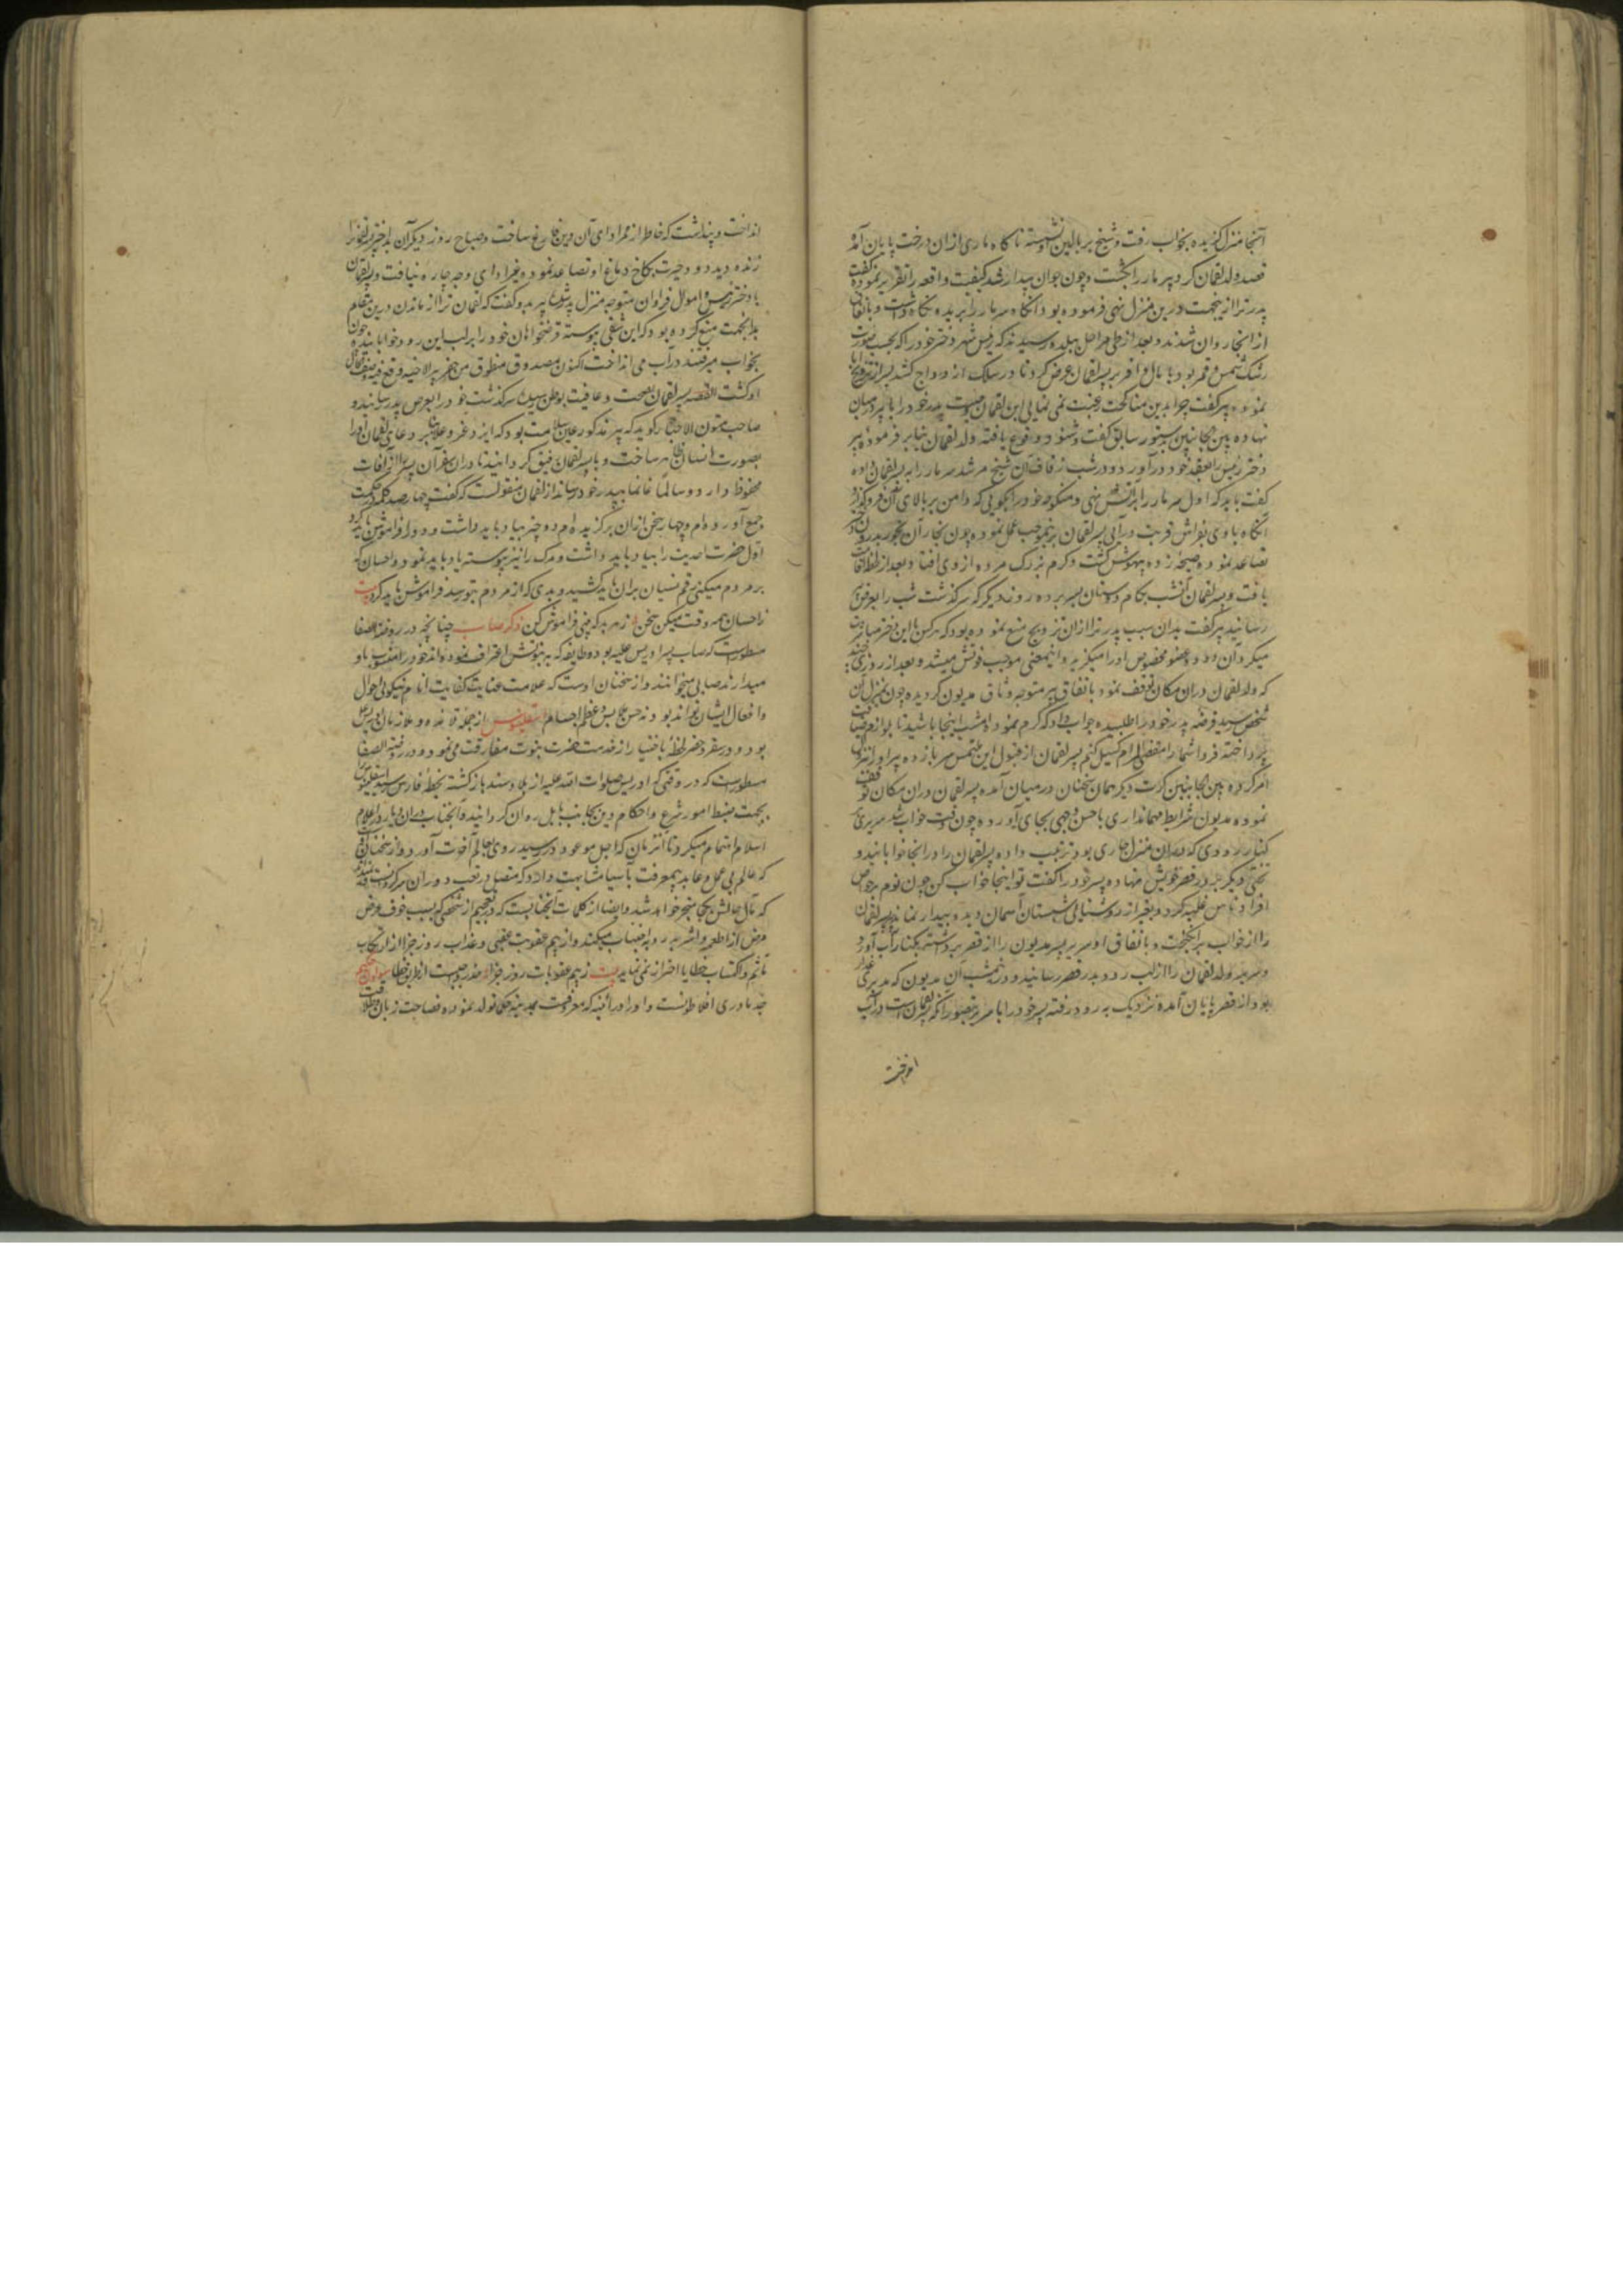 آنجا منزل گزیده بخواب رفت و شیخ بر بالین او نشسته ناگاه ماری ازان درخت پایان آمده
قصد ولد لقمان کرد پیر مار را بکشت و چون جوان بیدار شد کیفیت واقعه را تقریر نموده گفت
پدر ترا ازینجهت درین منزل نهی فرموده بود آنگاه سر مار را بریده نگاه داشت و باتفاق
از انجا روان شدند و بعد از طی مراحل ببلده رسیدند که رئیس شهر دختر خود را که بحسب صورت
رشک شمس و قمر بود با مال وافر بر پسر لقمان عرض کرد تا در سلک ازدواج کشد پسر از تزویج ابا
نموده پیر گفت چرا بدین مناکحت رغبت نمی نمایی ابن لقمان وصیت پدر خود را با پیر درمیان
نهاده بین الجانبین بدستور سابق گفت و شنود وقوع یافته ولد لقمان بنابر فرموده پیر
دختر رئیس را بعقد خود درآورد و در شب زفاف آن شیخ مرشد سر مار را به پسر لقمان داده
گفت باید که اول سر مار را بر آتش نهی و منکوحه خود را بگویی که دامن بر بالای آن فرو گذارد
آنگاه با وی بفراش قربت درآیی پسر لقمان بر نموجب عمل نموده چون بخار آن بخور بدرون
تصاعد نموده صیحه زده بیهوش گشت و کرم بزرگ مرده از وی افتاد و بعد از لحظه افاقت
یافت و پسر لقمان آنشب بکام دوستان بسر برده روز دیگر که سرگذشت شب را بعرض پیر
رسانید پیر گفت بدان سبب پدر ترا ازان تزویج منع نموده بود که هر کس با این دختر مباشرت
میکرد آن دود عضو مخصوص او را میگزید و اینمعنی موجب فوتش میشد و بعد از روزی چند
که ولد لقمان دران مکان توقف نمود باتفاق پیر متوجه وثاق مدیون گردیده چون بمنزل آن
شخص رسید قرضه پدر خود را طلبیده جواب داد که کرم نموده امشب اینجا باشید تا
پرداخته فردا شما را مقضی المرام گسیل کنم پسر لقمان از قبول این ملتمس سر باز زده پیر او را
امر کرده بین الجانبین کرت دیگر همان سخنان درمیان آمده پسر لقمان دران مکان توقف
نموده مدیون شرایط مهمانداری باحسن وجهی بجای آورده چون وقت خواب شد سریری
کنار رودی که دران منزل جاری بود ترتیب داده پسر لقمان را درانجا خوابانید و
تختی دیگر در قصر خویش نهاده پسر خود را گفت تو اینجا خواب کن چون نوم بر حواس
افراد ناس غلبه کرد و بغیر از روشنائی شبستان آسمان دیده بیدار نماند پیر لقمان
را از خواب برانگیخت و باتفاق او سریر پسر مدیون را از قصر برداشته بکنار آب آورد
و سریر ولد لقمان را از لب رود بدر قصر رسانید و در نیمشب آن مدیون که مدبری غدار
بود از قصر پایان آمده نزدیک به رود رفته پسر خود را با سریر بتصور آنکه پسر لقمان است در آب
انداخت
انداخت و پنداشت که خاطر از ممر ادای آن دین فارغ ساخت و صباح روز دیگر آن بداختر پسر لقمان را
زنده دید دود حیرت بکاخ دماغ او تصاعد نموده بغیر ادای وجه چاره نیافت و پسر لقمان
با دختر رئیس و اموال فراوان متوجه منزل پدر شد پیر بدو گفت که لقمان ترا از ماندن درین مقام
بدانجهت منع کرده بود که این شقی پیوسته قرضخواهان خود را بر لب این رود خوابانیده چون
بخواب میرفتند در آب می انداخت اکنون مصدوق منطوق من حفر بیرا لاخیه فقد وقع فیه
او گشت القصه پسر لقمان بصحت و عافیت بوطن رسیده سرگذشت خود را بعرض پدر رسانید و
صاحب متون الاخبار گوید که پیر مذکور عین سلامت بود که ایزد عز و علا بنابر دعای لقمان او را
بصورت انسان ظاهر ساخت و با پسر لقمان رفیق گردانید تا دران سفر آن پسر را از آفات
محفوظ دارد و سالما غانما بپدر خود رساند از لقمان منقولست که گفت چهار صد کلمه در حکمت
جمع آورده ام و چهار سخن ازان برگزیده ام دو چیز بیاد باید داشت و دو را فراموش باید کرد
اول حضرت احدیت را بیاد باید داشت و مرگ را نیز پیوسته یاد باید نمود و احسان که
بر مردم میکنی رقم نسیان بران باید کشید و بدی که از مردم بتو رسد فراموش باید کرد بیت
ز احسان هر وقت میکن سخن ز هر بد که بینی فراموش کن ذکر صاب چنانچه در روضة الصفا
مسطور است که صاب پسر ادریس علیه بود و طایفه که به نبوتش اعتراف نموده اند خود را منسوب باو
میدارند صابی میخوانند و از سخنان اوست که علامت عنایت کفایت انام نیکوئی احوال
و افعال ایشان تواند بود نه حسن ملابس و عظم اجسام اسقلینوس از جمله تلامذه و ملازمان ادریس
بود و در سفر و حضر لحظه باختیار از خدمت حضرت نبوت مفارقت نمی نمود و در روضة الصفا
مسطور است که در وقتی که ادریس صلوات الله علیه از بلاد سند بازگشته بخطه فارس رسید اسقلینوس را
بجهت ضبط امور شرع و احکام دین بجانب بابل روان گردانید و آنجناب دران دیار در اعلام
اسلام اهتمام میکرد تا آنزمان که اجل موعود در رسید روی بعالم آخرت آورد و از سخنان
که عالم بی عمل و عابد بیمعرفت بآسیا مشابهت دارد که متصل در تعب دوران سرگردانست
که مآل حالش بکجا منجر خواهد شد و ایضا از کلمات آنجنابست که در تعجبم از شخصی که بسبب خوف عروض
مرض از اطعمه و اشربه ردیه اجتناب میکند و از بیم عقوبت عقبی و عذاب روز جزا از ارتکاب
مآثم و اکتساب خطایا احتراز نمی نماید بیت ز بیم عقوبات روز جزا حذر واجبست از طریق خطا سولون حکیم
جد مادری افلاطونست و او در اثینه که معروفست بمدینه حکما تولد نموده فصاحت زبان